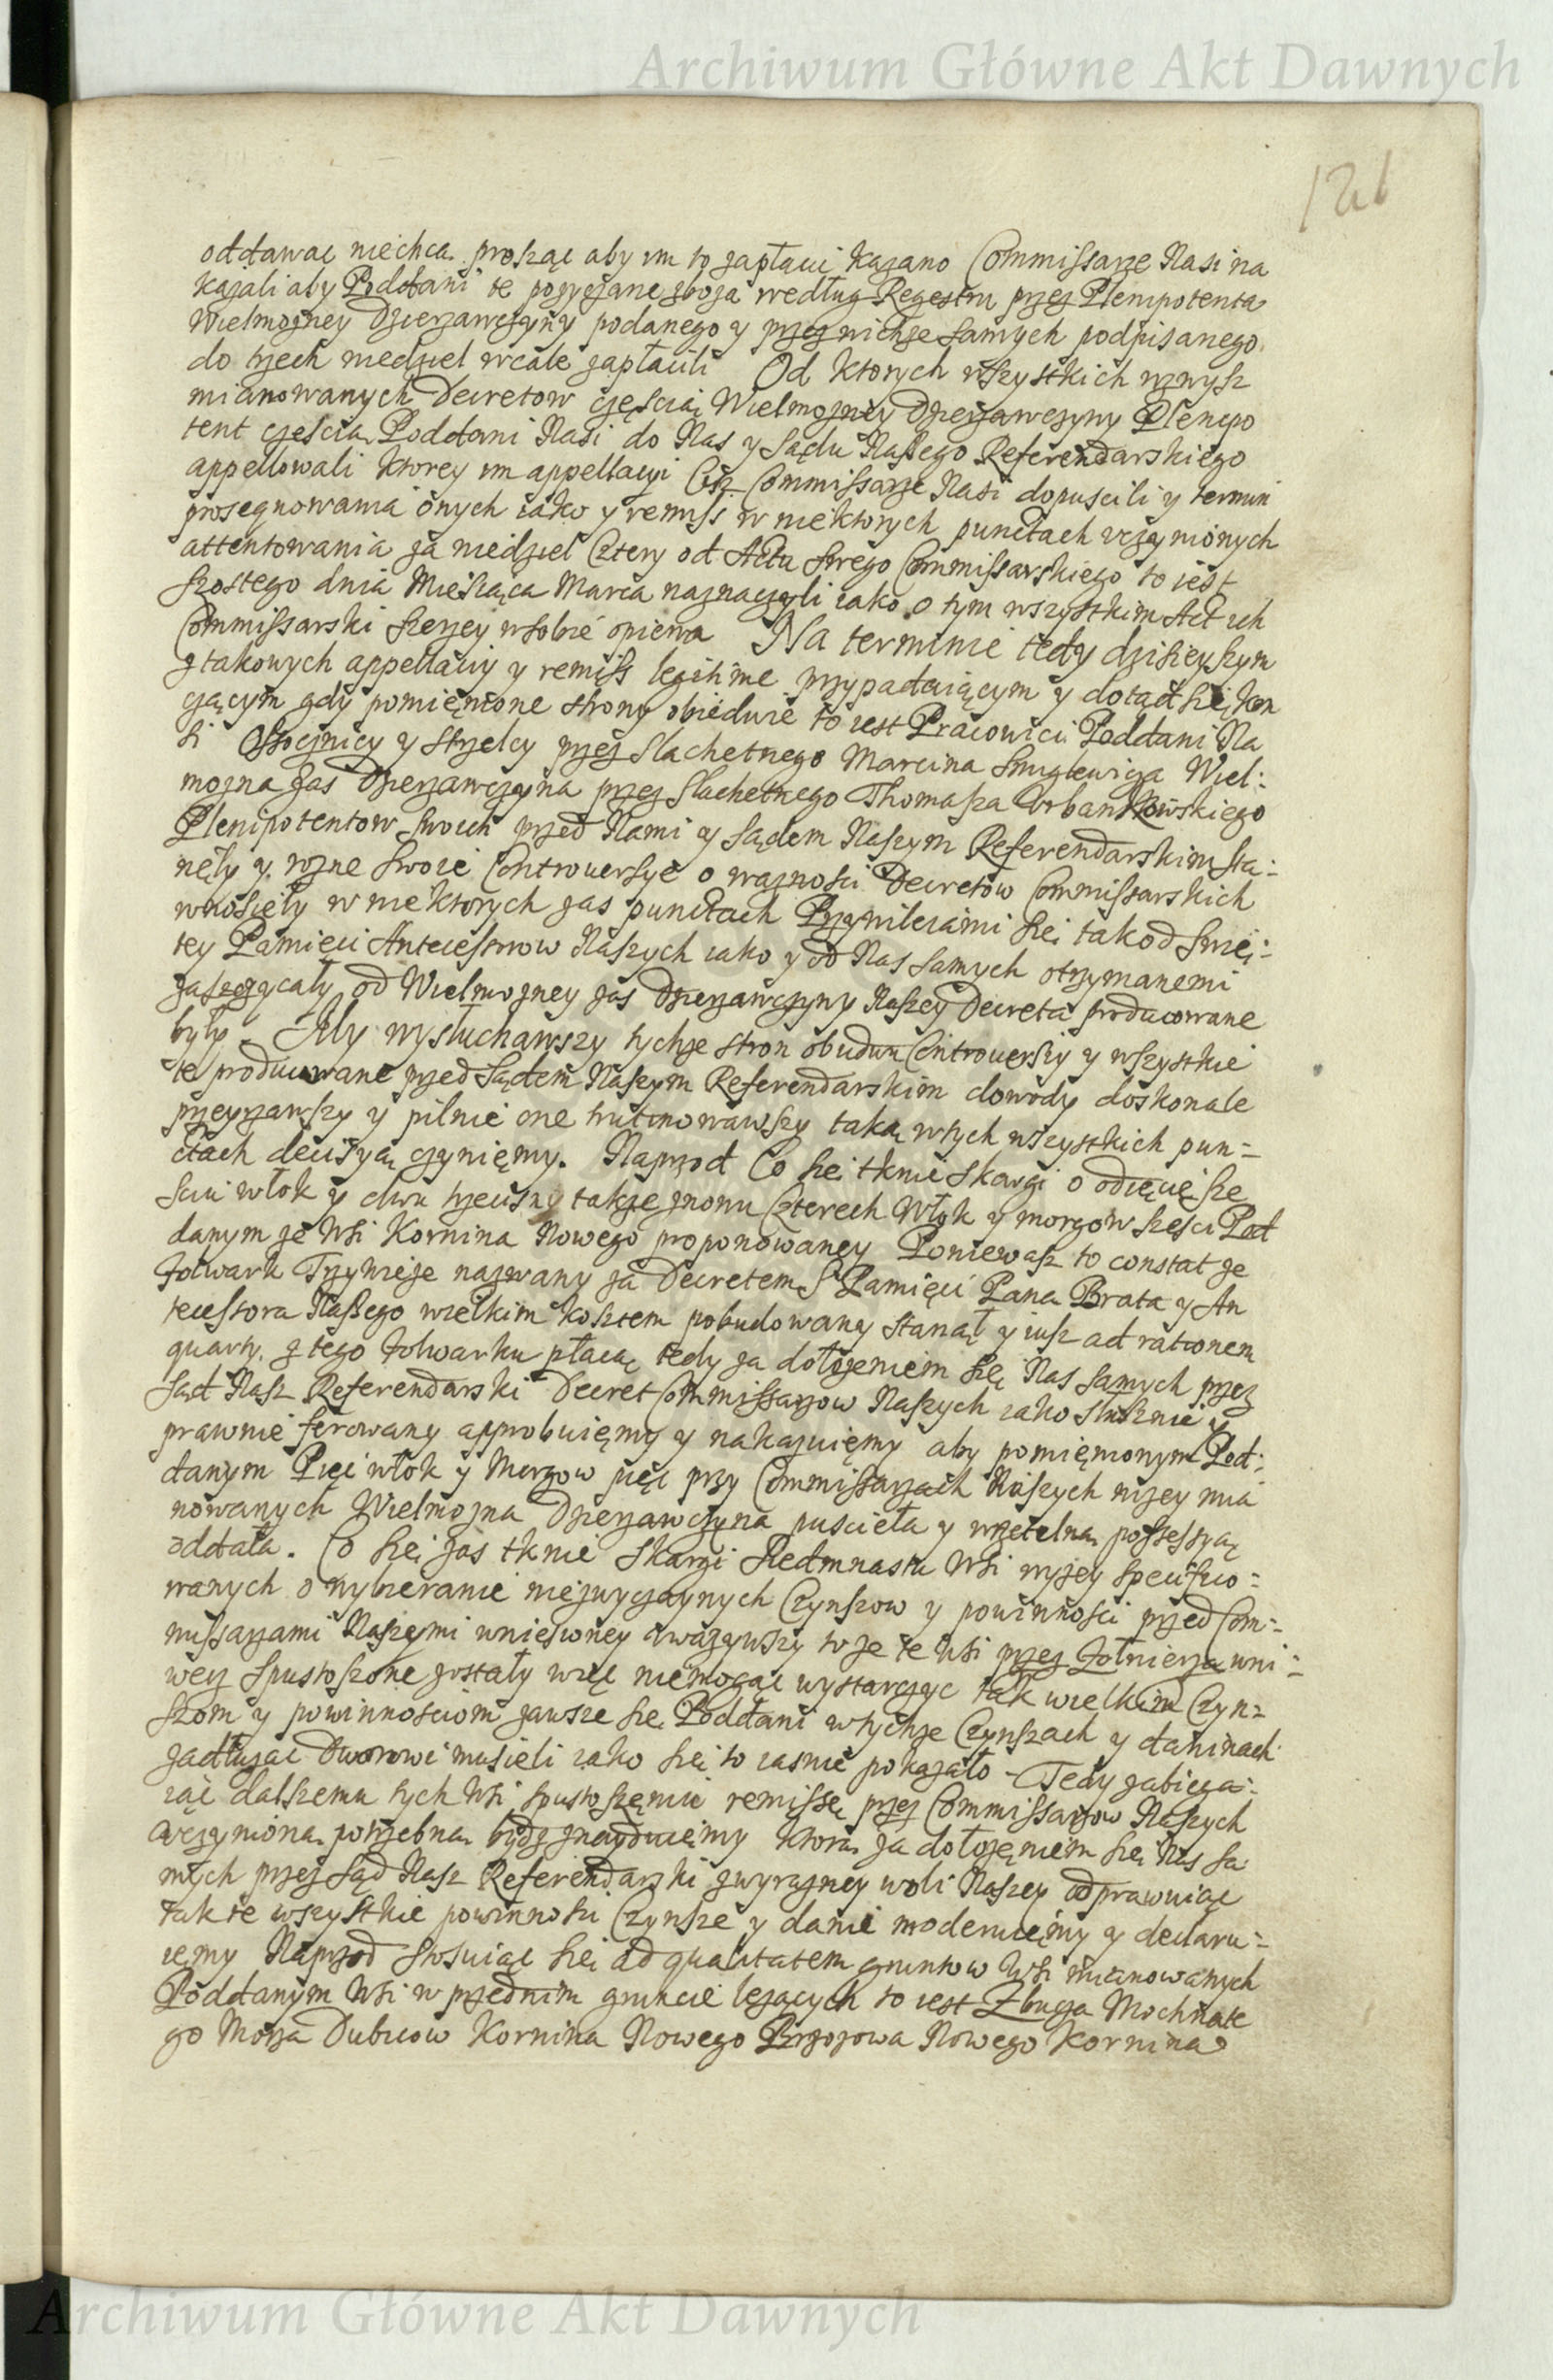 Archiwum Główne Akt Dawnych
121
oddawac niechcą prosząc aby im to zapłacic kazano Commissarze Nasi na
kazali aby Poddani te pozyczane zboza według Regestru przez Plenipotenta
Wielmozney Dzierzawczyny podanego y przez nichze samych podpisanego
do trzech niedziel wcale zapłacili Od ktorych wszystkich wzwysz
mianowanych Decretow częscią Wielmozney Dzierzawczyny Plenipo
tent częscią Poddani Nasi do Nas y Sądu Naszego Referendarskiego
appellowali ktorey im appellacyi Ciz Commissarze Nasi dopuscili y termin
prosequowania onych iako y remiss w niektorych punctach uczynionych
attentowania za niedziel Cztery od Actu swego Commissarskiego to iest
szostego dnia Miesiąca Marca naznaczyli iako o tym wszystkim Act ich
Commissarski szerzey w sobie opiewa Na terminie tedy dzisieyszym
z takowych appellaciy y remiss legitime przypadaiącym y dotąd się kon
czącym gdy pomięnione strony obiedwie to iest Pracowici Poddani Na
si Osocznicy y Strzelcy przez Slachetnego Marcina Smuglewicza Wiel:
mozna zas Dzierzawczyna przez Slachetnego Thomasza Urbankowskiego
Plenipotentow swoich przed Nami y Sądem Naszym Referendarskim sta:
nęły y rozne swoie Controuersye o waznosci Decretow Commissarskich
wnosieły w niektorych zas punctach Przywileiami się tak od swię:
tey Pamięci Antecessorow Naszych iako y od Nas samych otrzymanemi
zaszczycały od Wielmozney zas Dzierzawczyny Naszey Decreta producowane
były. My wysłuchawszy tychze stron obudwu Controuersiy y wszystkie
te producowane przed Sądem Naszym Referendarskim dowody doskonale
przeyzrawszy y pilnie one trutinowawszy taką w tych wszystkich pun=
ctach decisyą czyniemy. Naprzod Co się tknie skargi o odięcie sze
sciu włok y dwu trzeciny takze znowu Czterech Włok y morgow szesci Pod
danym ze Wsi Kornina Nowego proponowaney Poniewasz to constat ze
folwark Trzywieze nazwany za Decretem S Pamięci Pana Brata y An
tecessora Naszego wielkim kosztem pobudowany stanął y iusz ad rationem
quarty z tego folwarku płacą tedy za dołozeniem się Nas samych przez
Sąd Nasz Referendarski Decret Commissarzow Naszych iako słusznie y
prawnie ferowany approbuięmy y nakazuięmy aby pomięnionym Pod:
danym Pięc włok y Morgow pięc przy Commissarzach Naszych nizey mia
nowanych Wielmozna Dzierzawczyna pusciela y wrzetelną possessyą
oddała. Co się zas tknie Skargi Siedmnastu Wsi wyzey specifico=
wanych o wybieranie niezwyczaynych Czynszow y powinnosci przed Com=
missarzami Naszęmi wniesioney uwazywszy to ze te Wsi przez Zołnierza wni=
wecz spustoszone zostały więc niemogąc wystarczyc tak wielkim Czyn=
szom y powinnosciom zawsze się Poddani w tychze Czynszach y daninach
zadłuzac Dworowi musieli iako się to iasnie pokazało - Tedy zabiega:
iąc dalszemu tych Wsi spustoszęniu remissę przez Commissarzow Naszych
uczynioną potrzebną bydz znayduiemy ktorą za dołozęniem się Nas sa
mych przez Sąd Nasz Referendarski z wyrazney woli Naszey odprawuiąc
tak te wszystkie powinnosci Czynsze y danie moderuięmy y declaru=
iemy Naprzod stosuiąc się ad qualitatem gruntow Wsi mianowanych
Poddanym Wsi w przednim gruncie lezących to iest Zbucza Mochnate
go Morza Dubicow Kornina Nowego Brzozowa Nowego Kornina
Archiwum Główne Akt Dawnych